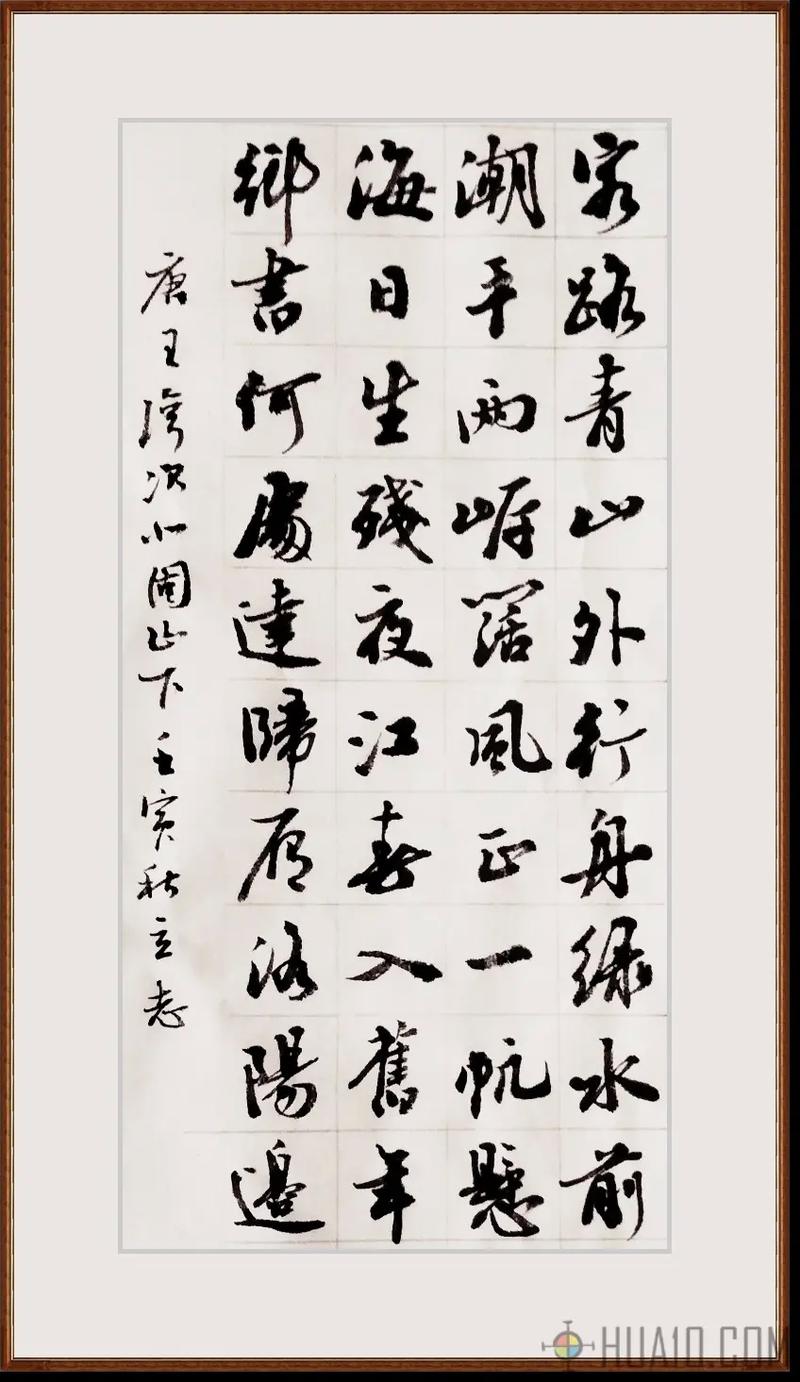 客路青山外行舟緑水前
潮平兩岸闊風正一帆懸
海日生殘夜江春入舊年
鄉書何處達歸雁洛陽邊
唐王灣次北固山下壬寅秋立志
HUA10.COM